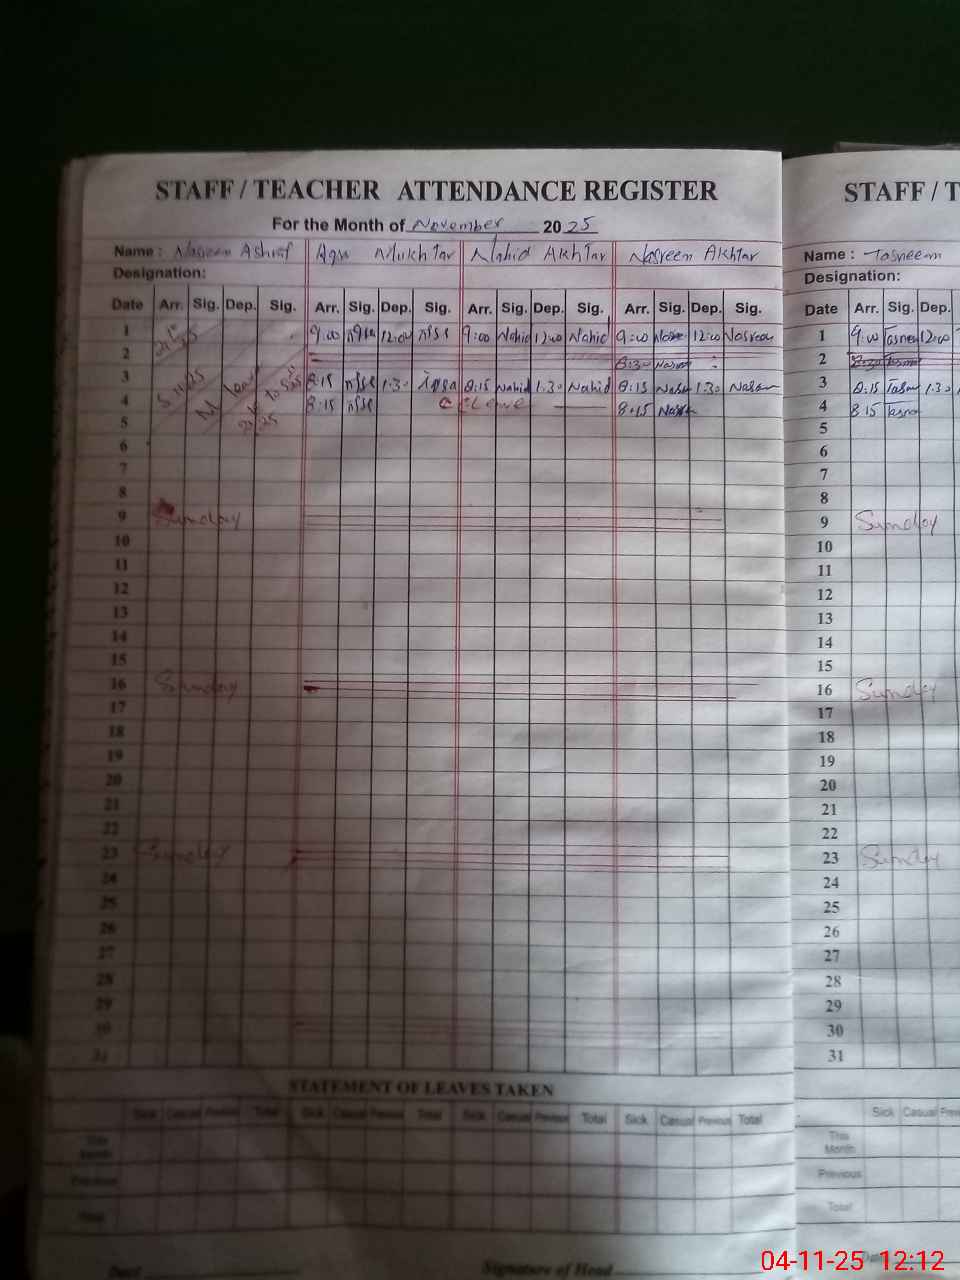 STAFF / TEACHER ATTENDANCE REGISTER
For the Month of November 2025
Name : Nasreen Ashraf Mukhtar Nahid Akhtar Nasreen Akhtar
Designation:
Date Arr. Sig. Dep. Sig. Arr. Sig. Dep. Sig. Arr. Sig. Dep. Sig. Arr. Sig. Dep. Sig.
1 9:00 12:00 9:00 Nahid 12:00 Nahid 9:00 12:00 Nasreen
2 8:30
3 8:15 1:30 8:15 Nahid 1:30 Nahid 8:15 1:30
4 8:15 Leave 8:15
M Leave
5
6
7
8
9 Sunday
10
11
12
13
14
15
16 Sunday
17
18
19
20
21
22
23 Sunday
24
25
26
27
28
29
30
31
STATEMENT OF LEAVES TAKEN
Sick Casual Previous Total Sick Casual Previous Total Sick Casual Previous Total Sick Casual Previous Total
This Month
Previous
Total
Signature of Head
STAFF / T
Name : Tasneem
Designation:
Date Arr. Sig. Dep.
1 9:00 12:00
2 8:30
3 8:15 1:30
4 8:15
5
6
7
8
9 Sunday
10
11
12
13
14
15
16 Sunday
17
18
19
20
21
22
23 Sunday
24
25
26
27
28
29
30
31
Sick Casual
This Month
Previous
Total
04-11-25 12:12